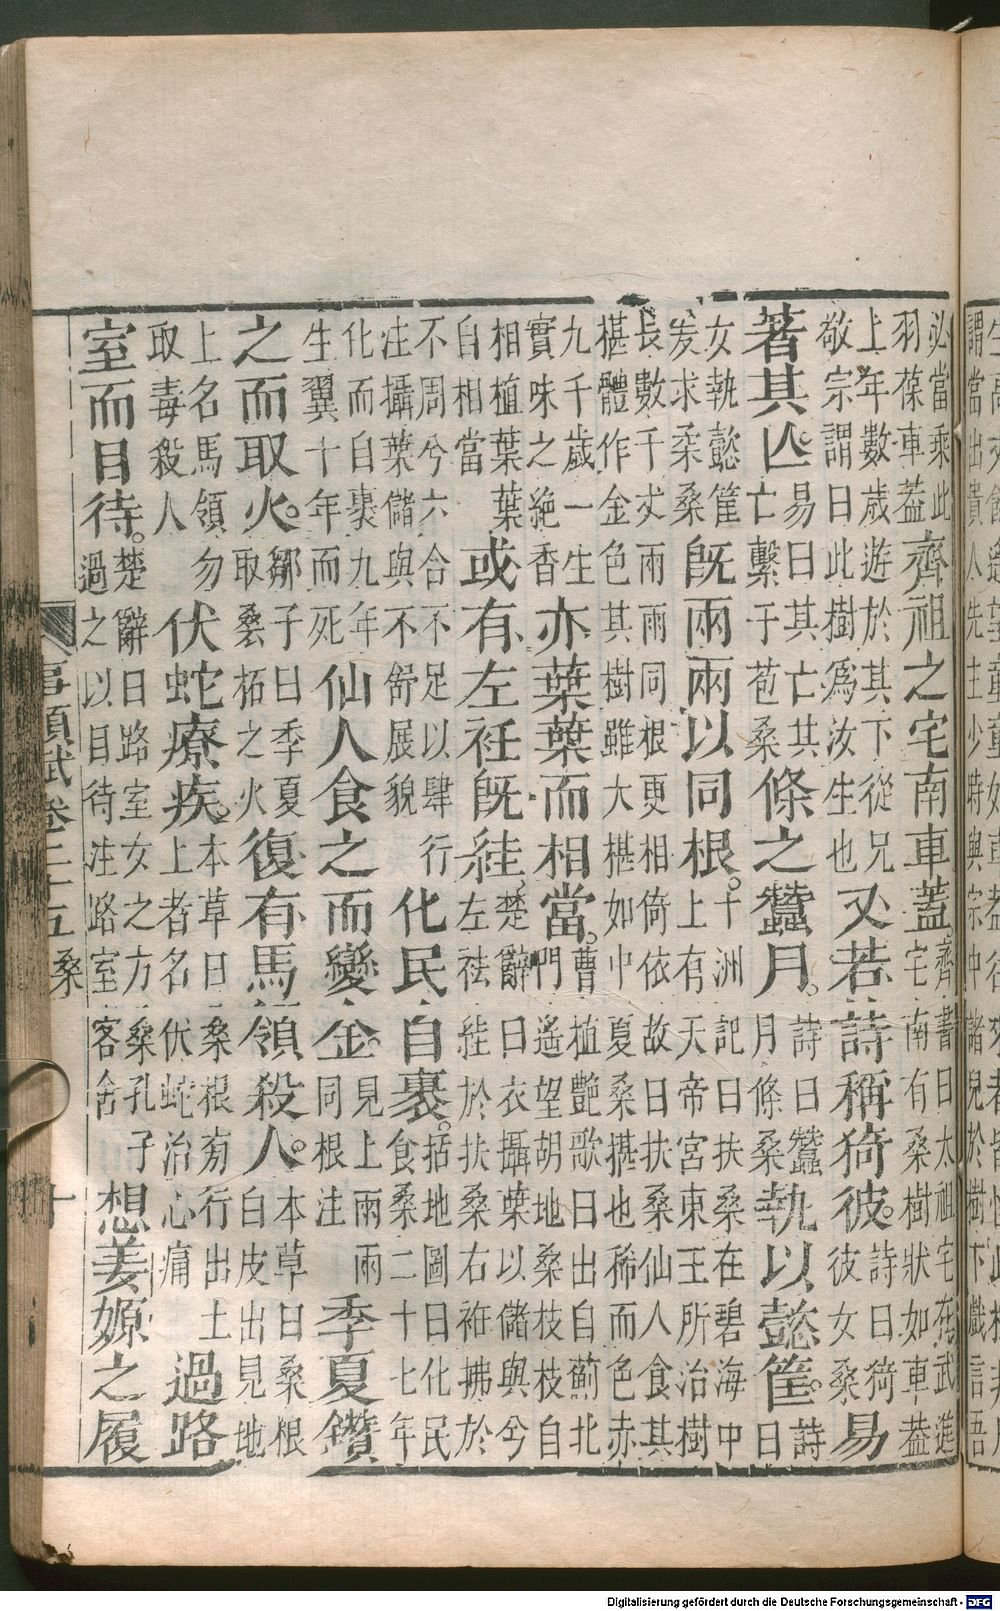 謂當出貴人先主少時與宗中諸兒於樹下戲言吾
必當乘此
羽葆車蓋
齊祖之宅南車蓋。
齊書曰太祖宅在武進
宅南有桑樹狀如車蓋
上年數歲遊於其下從兄
敬宗謂曰此樹爲汝生也
又若詩稱猗彼。
詩曰猗
彼女桑
易
著其亾。
易曰其亡其
亡繫于苞桑
條之蠶月。
詩曰蠶
月條桑
執以懿筐。
詩
曰
女執懿筐
爰求柔桑
旣兩兩以同根。
十洲記曰扶桑在碧海中
上有天帝宮東王所治樹
長數千丈兩兩同根更相倚依故曰扶桑仙人食其
椹體作金色其樹雖大椹如中夏桑椹也稀而色赤
九千歲一生
實味之絶香
亦葉葉而相當。
曹植艷歌曰出自薊北
門遙望胡地桑枝枝自
相植葉葉
自相當
或有左衽旣絓。
楚辭曰衣攝葉以儲與兮
左袪絓於扶桑右衽拂於
不周兮六合不足以肆行
注攝葉儲與不舒展貌
化民自裹。
括地圖曰化民
食桑二十七年
化而自裹九年
生翼十年而死
仙人食之而變金。
見上兩兩
同根注
季夏鑽
之而取火。
鄒子曰季夏
取桑柘之火
復有馬領殺人。
本草曰桑根
白皮出見地
上名馬領勿
取毒殺人
伏蛇療疾。
本草曰桑根旁行出土
上者名伏蛇治心痛
過路
室而目待。
楚辭曰路室女之方桑孔子
過之以目待注路室客舍
想姜嫄之履
事類賦卷二十五 桑
十
Digitalisierung gefördert durch die Deutsche Forschungsgemeinschaft - DFG